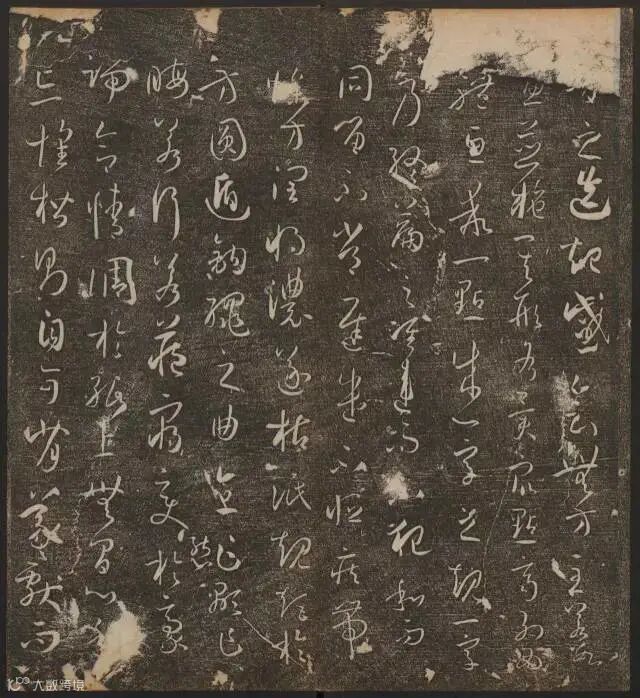 之迭起感會無方至若數
畫並施其形各異眾點齊列為
體互乖一點成一字之規一字
乃終篇之准違而不犯和而不
同留不常遲遣不恒疾帶
燥方潤將濃遂枯泯規矩於
方圓遁鉤繩之曲直乍顯乍
晦若行若藏窮變態於豪
端合情調於紙上無間心手
忘懷楷則自可背羲獻而
大数跨境